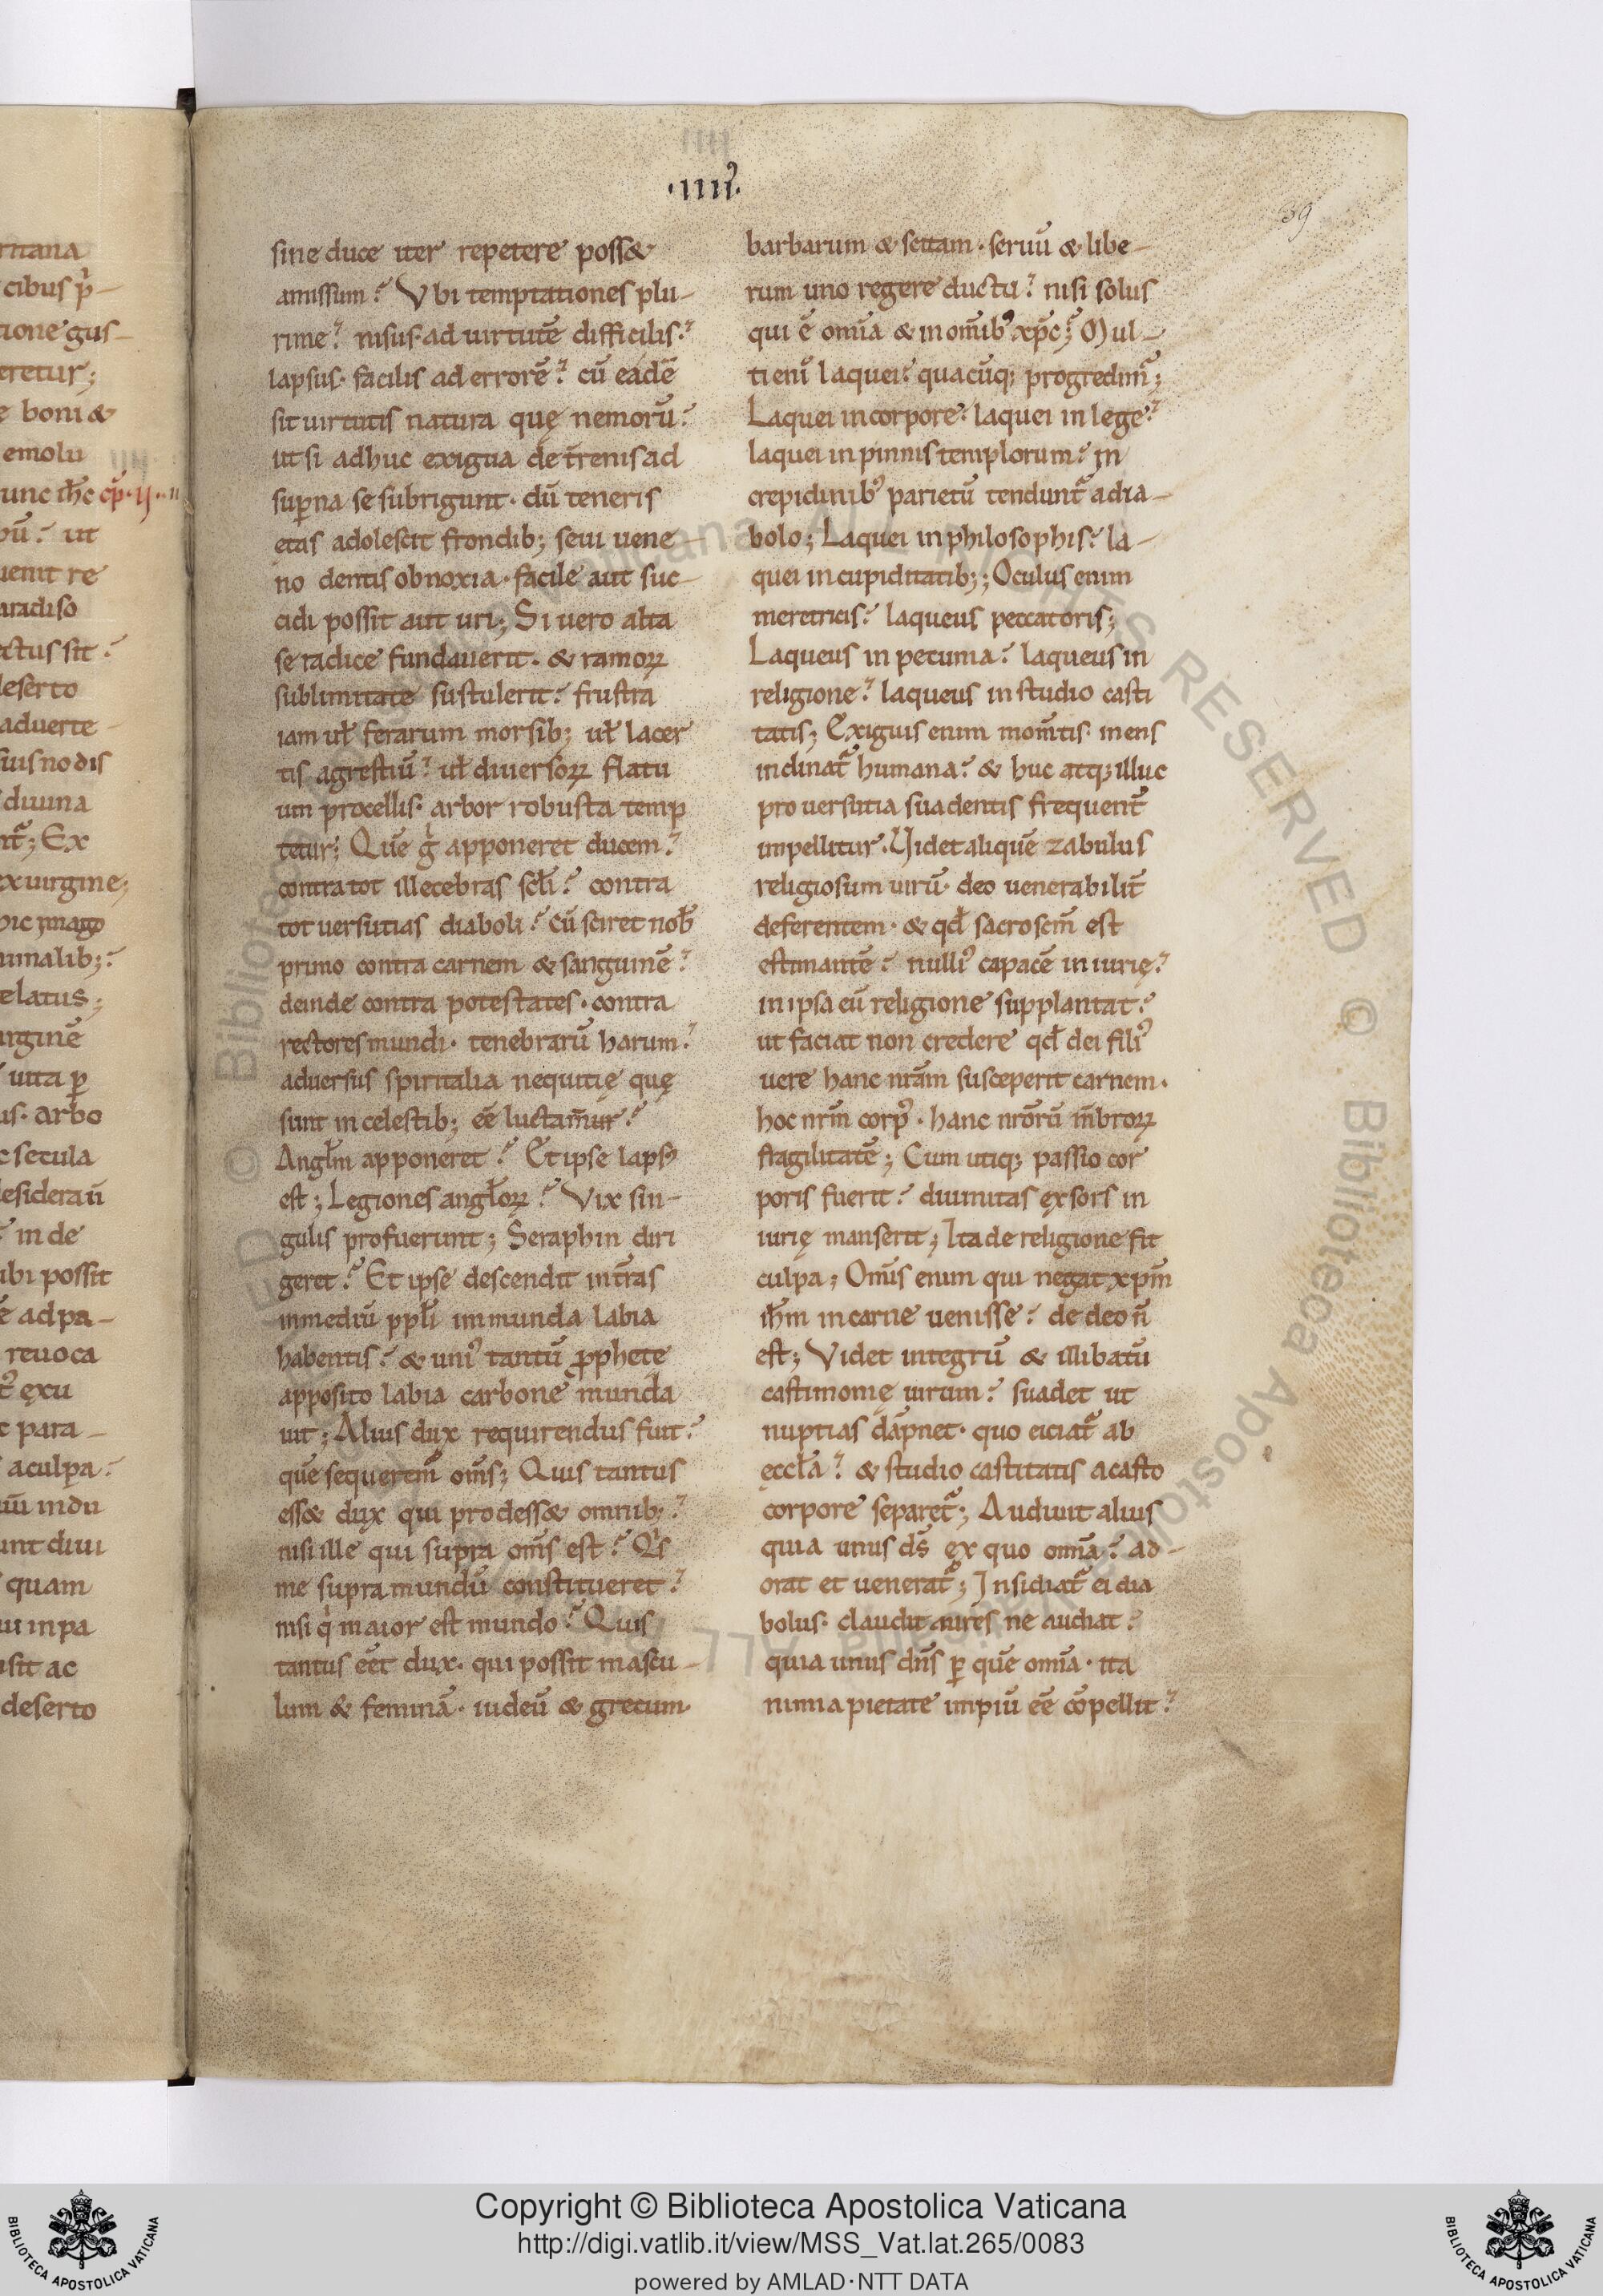 ·IIII·
39
sine duce iter repetere poss&
amissum? Vbi temptationes plu-
rime? nisus· ad uirtutē difficilis?
lapsus· facilis ad errorē? cū eadē
sit uirtutis natura quę nemorū?
ut si adhuc exigua de t̄renis ad
suꝑna se subrigunt· dū teneris
etas adolescit frondib; seui uene-
no dentis obnoxia· facile aut suc-
cidi possit aut uri; Si uero alta
se radice fundauerit· & ramoꝝ
sublimitate sustulerit? frustra
iam ul̄ ferarum morsib; ul̄ lacer
tis agrestiū? ul̄ diuersoꝝ flatu
um procellis· arbor robusta temp
tetur; Quē g̊ apponeret ducem?
contra tot illecebras scl̄i? contra
tot uersutias diaboli? cū sciret nob̄
primo contra carnem & sanguinē?
deinde contra potestates· contra
rectores mundi· tenebrarū harum?
aduersus spiritalia nequitię quę
sunt in celestib; eē luctam̄ur?
Angl̄m apponeret? Et ipse lapsꝰ
est; Legiones angl̄oꝝ? Vix sin-
gulis profuerunt; Seraphin diri
geret? Et ipse descendit in t̄ras
in mediū ppl̄i immunda labia
habentis? & uniꝰ tantū ꝓphete
apposito labia carbone munda
uit; Alius dux requirendus fuit?
quē sequerem̄ om̄s; Quis tantus
ess& dux qui prodess& omnib;?
nisi ille qui supra om̄s est? Qͥs
me supra mundū constitueret?
nisi qͥ maior est mundo? Quis
tantus eēt dux· qui possit mascu-
lum & feminā· iudeū & grecum·
barbarum & scitam· seruū & libe-
rum uno regere ductu? nisi solus
qui ē omīa & in om̄ibꝰ xp̄c; Mul-
ti enī laquei? quacūq; progredim̄;
Laquei in corpore? laquei in lege?
laquei in pinnis templorum? in
crepidinibꝰ parietū tendunt᷒ a dia-
bolo; Laquei in philosophis? la-
quei in cupiditatib;; Oculus enim
meretricis? laqueus peccatoris;
Laqueus in pecunia? laqueus in
religione? laqueus in studio casti
tatis; Exiguis enim mom̄tis· mens
inclinat᷒ humana? & huc atq; illuc
pro uersutia suadentis frequent̄
impellitur· Uidet aliquē zabulus
religiosum uirū· deo uenerabilit̄
deferentem· & qd̄ sacroscm̄ est
estimantē? nulliꝰ capacē iniurię?
in ipsa eū religione supplantat?
ut faciat non credere qd̄ dei filiꝰ
uere hanc nr̄am susceperit carnem·
hoc nrm̄ corpꝰ· hanc nrōrū m̄broꝝ
fragilitatē; Cum utiq; passio cor
poris fuerit? diuinitas exsors in
iurię manserit; Ita de religione fit
culpa; Om̄is enim qui negat xpm̄
ih̄m in carne uenisse? de deo n̄
est; Videt integrū & illibatū
castimonię uirum? suadet ut
nuptias dāpnet· quo eiciat᷒ ab
ęccl̄a? & studio castitatis a casto
corpore separet᷒; Audiuit alius
quia unus ds̄ ex quo omīa? ad-
orat et uenerat᷒; Insidiat᷒ ei dia
bolus· claudit aures ne audiat?
quia unus dn̄s ꝑ quē omīa· ita
nimia pietate impiū eē cōpellit?
Copyright © Biblioteca Apostolica Vaticana
http://digi.vatlib.it/view/MSS_Vat.lat.265/0083
powered by AMLAD·NTT DATA
BIBLIOTECA APOSTOLICA VATICANA
BIBLIOTECA APOSTOLICA VATICANA